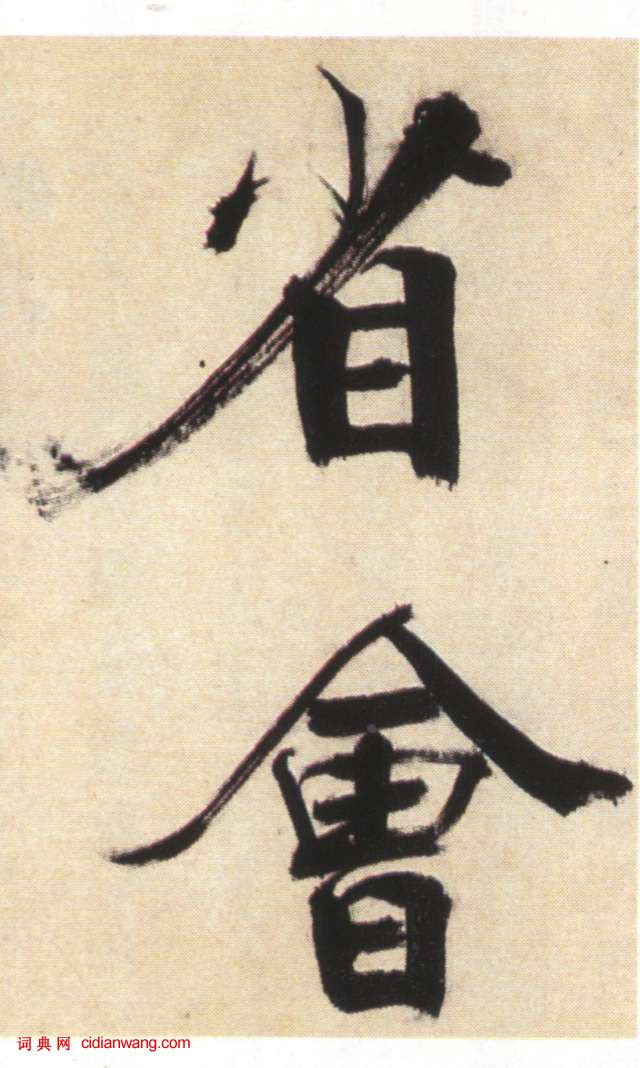 省
會
词典网 cidianwang.com